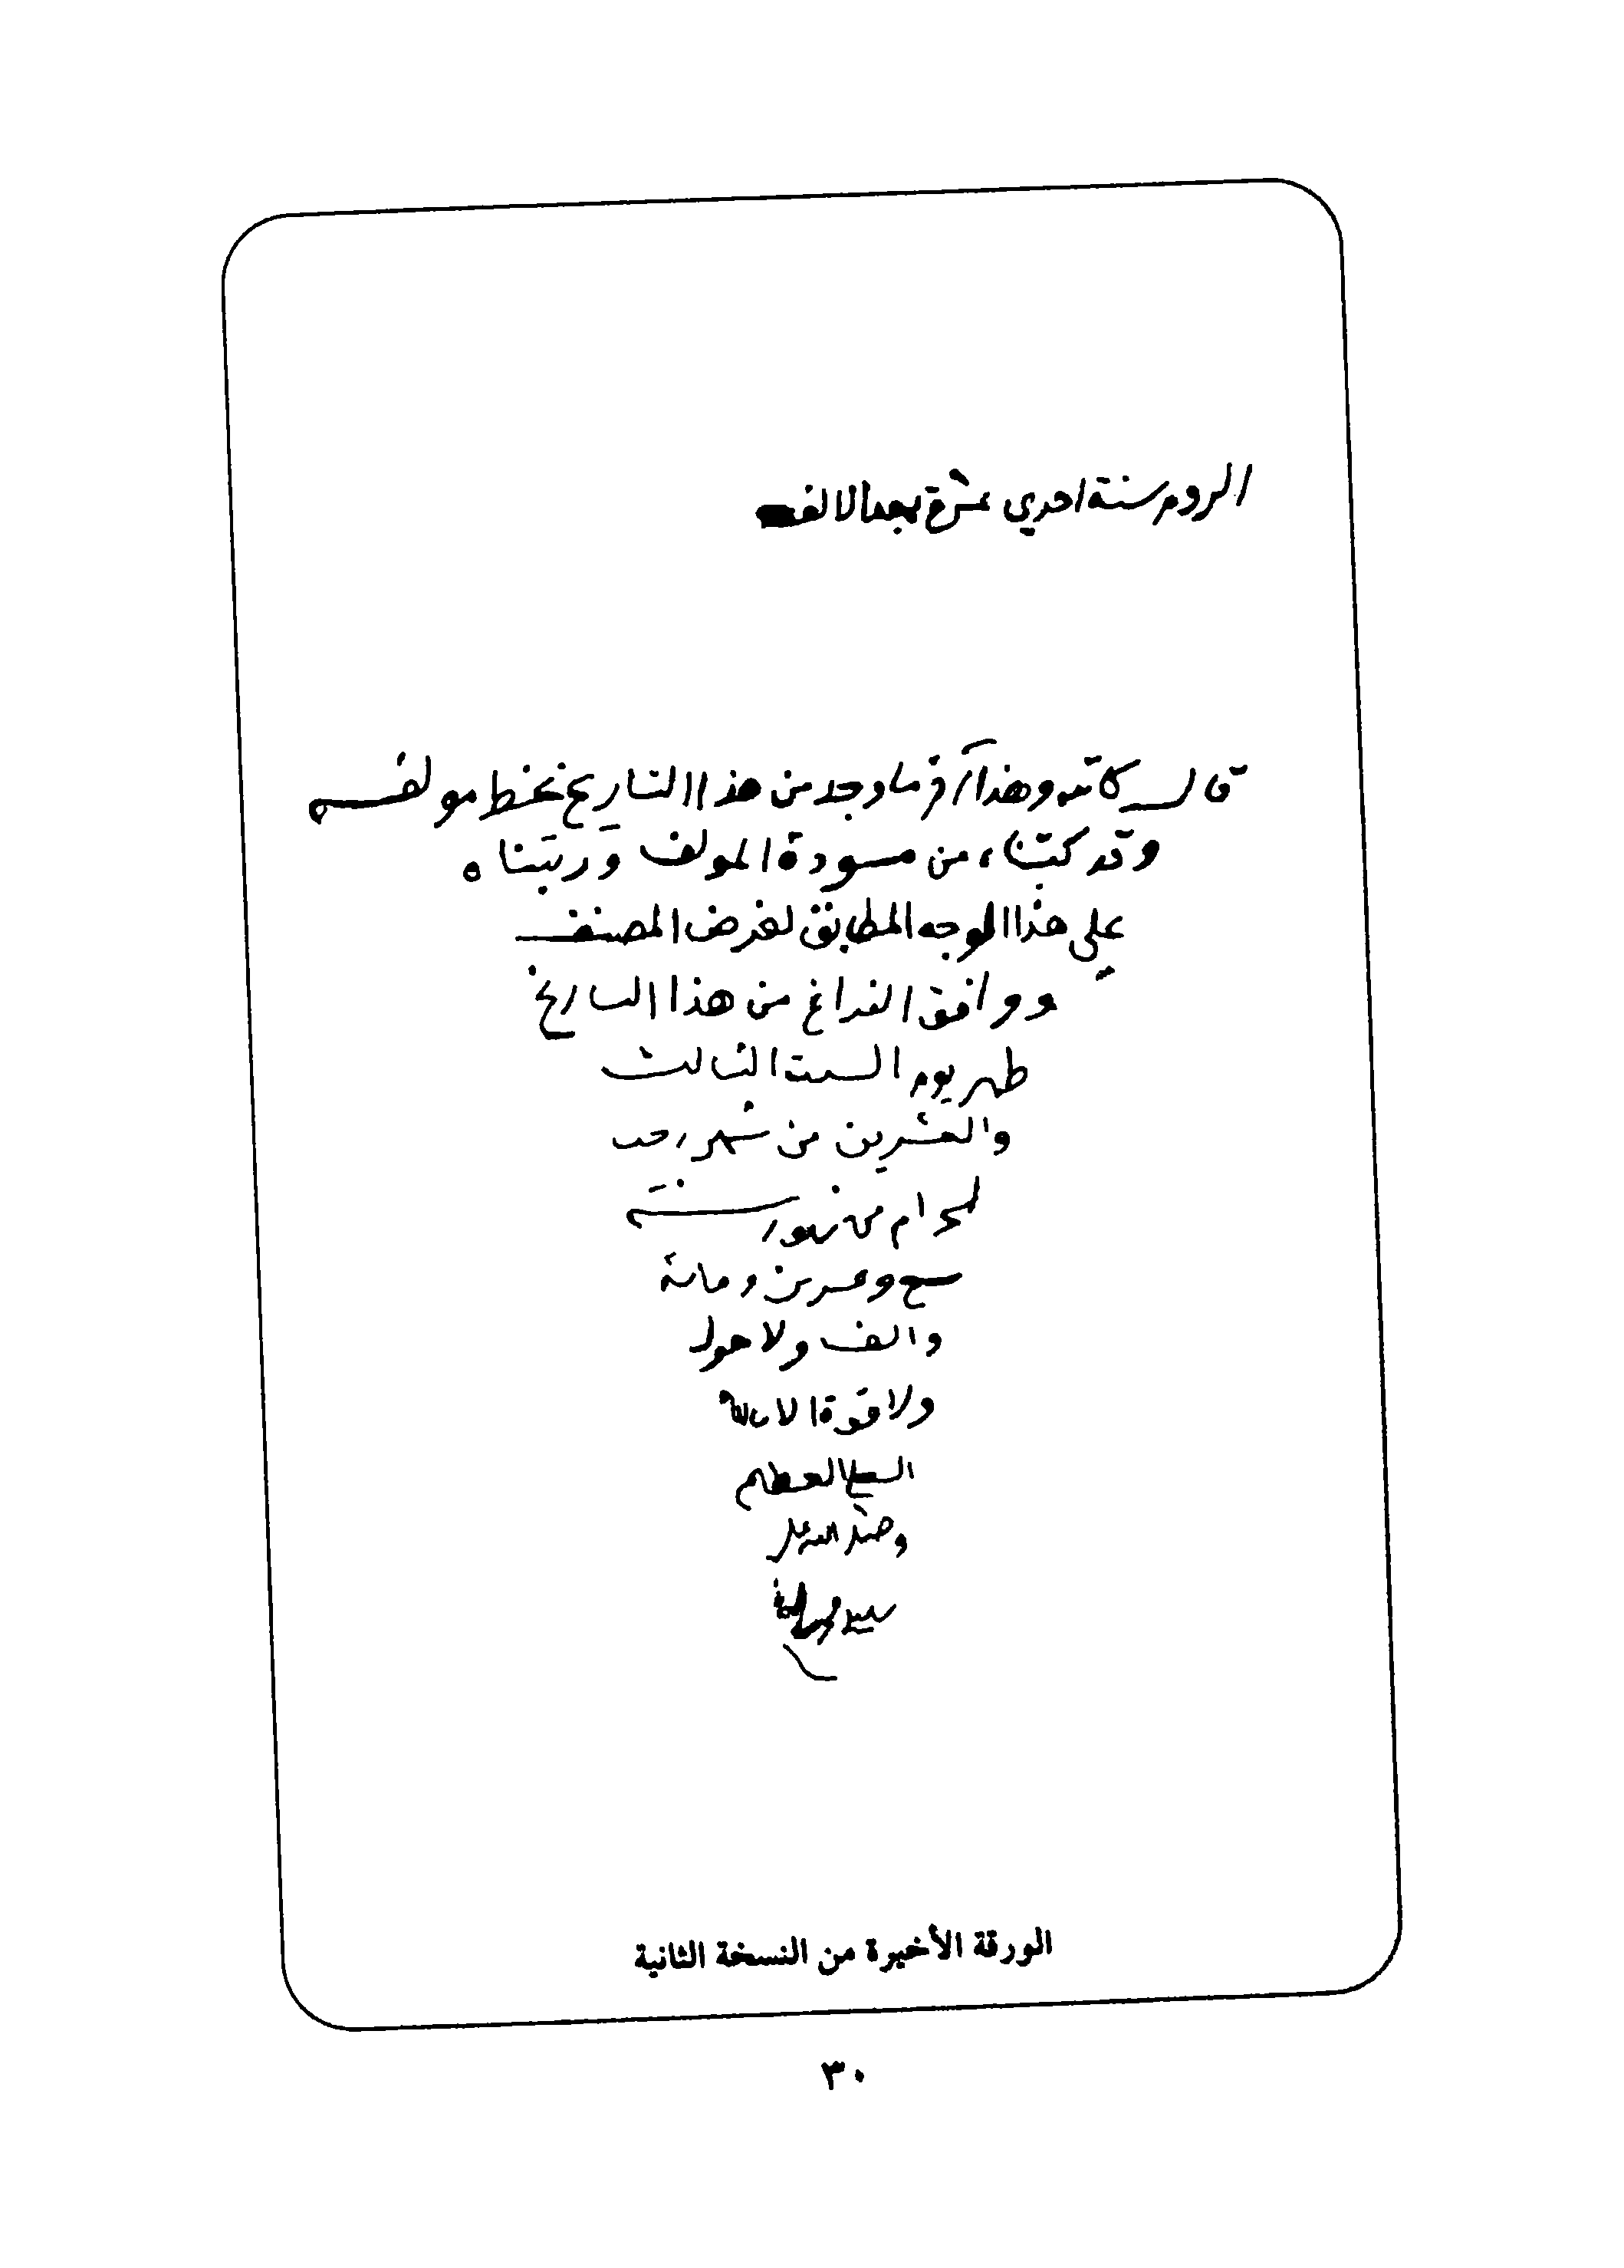 الروم سنة احدي عشرة بعد الالف
قال كاتبه وهذا آخر ما وجد من هذا التاريخ بخط مولفه
وقد كتبناه من مسودة المولف ورتبناه
على هذا الوجه المطابق لغرض المصنف
ووافق الفراغ من هذا التاريخ
ظهر يوم السبت الثالث
والعشرين من شهر رجب
الحرام من شهور سنة
سبع وعشرين ومائة
والف ولا حول
ولا قوة الا بالله
العلي العظيم
وصلى الله على
سيدنا محمد
الورقة الأخيرة من النسخة الثانية
٣٠